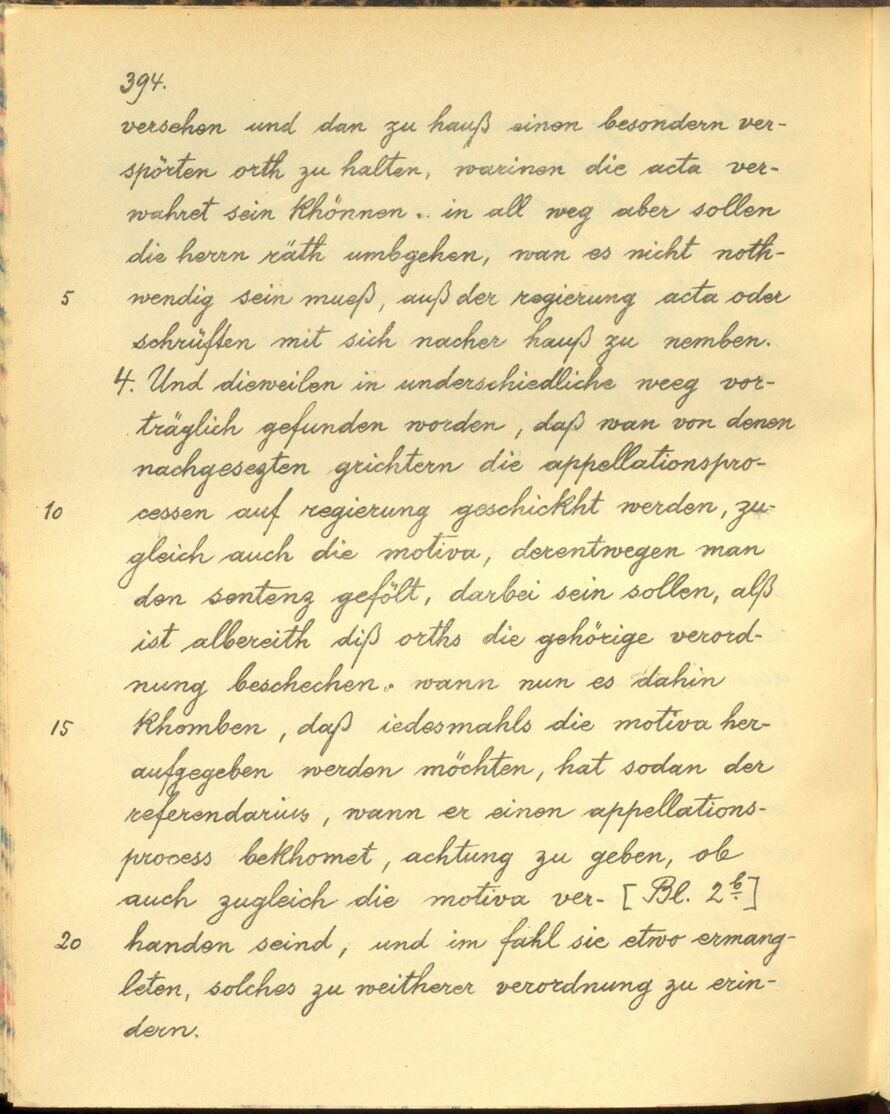 394.
versehen und dan zu hauß einen besondern ver-
spörten orth zu halten, warinen die acta ver-
wahret sein khönnen. in all weg aber sollen
die herrn räth umbgehen, wan es nicht noth-
5 wendig sein mueß, auß der regierung acta oder
schrüften mit sich nacher hauß zu nemben.
4. Und dieweilen in underschiedliche weeg vor-
träglich gefunden worden, daß wan von denen
nachgesezten grichtern die appellationspro-
10 cessen auf regierung geschickht werden, zu-
gleich auch die motiva, derentwegen man
den sentenz gefölt, darbei sein sollen, alß
ist albereith diß orths die gehörige verord-
nung beschechen. wann nun es dahin
15 khomben, daß iedesmahls die motiva her-
aufgegeben werden möchten, hat sodan der
referendarius, wann er einen appellations-
process bekhomet, achtung zu geben, ob
auch zugleich die motiva ver- [Bl. 2b]
20 handen seind, und im fahl sie etwo ermang-
leten, solches zu weitherer verordnung zu erin-
dern.